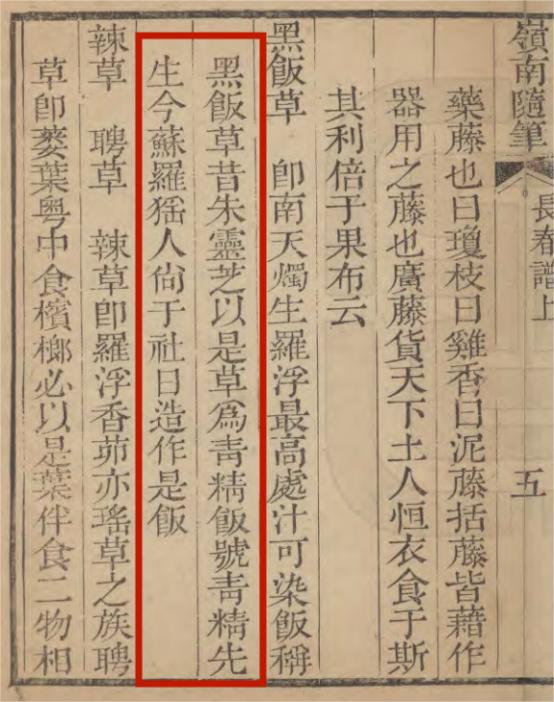 嶺南隨筆 長春譜上 五
藥藤也曰瓊枝曰雞香曰泥藤括藤皆藉作
器用之藤也廣藤貨天下土人恒衣食于斯
其利倍于果布云
黑飯草 卽南天燭生羅浮最高處汁可染飯稱
黑飯草昔朱靈芝以是草爲青精飯號青精先
生今蘇羅猺人尙于社日造作是飯
辣草 聘草 辣草卽羅浮香茆亦瑤草之族聘
草卽蔞葉粤中食檳榔必以是葉伴食二物相